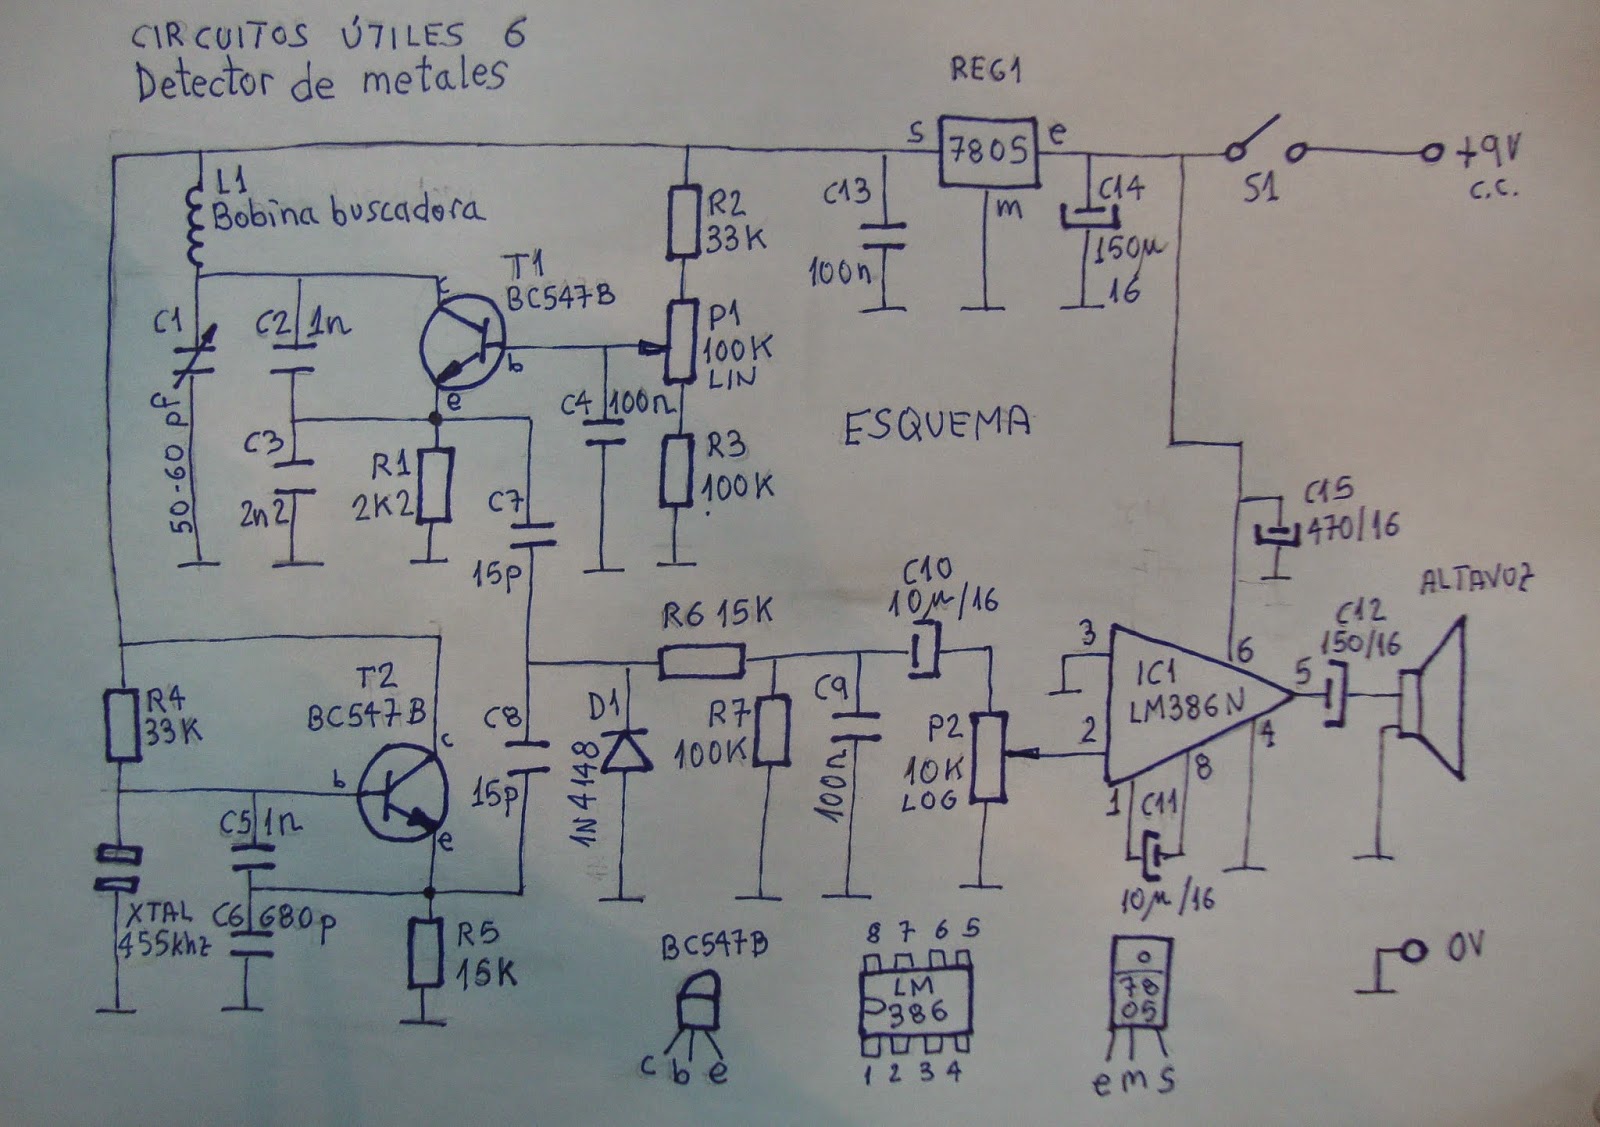 CIRCUITOS ÚTILES 6
Detector de metales
REG1
S
7805
e
m
S1
+9V
c.c.
L1
Bobina buscadora
R2
33K
C13
100n
C14
150µ
16
T1
BC547B
c
b
e
C1
50-60 pF
C2 1n
P1
100K
LIN
C4 100n
C3
2n2
R1
2K2
R3
100K
ESQUEMA
C7
15p
C15
470/16
ALTAVOZ
C10
10µ/16
R6 15K
C12
150/16
3
6
5
IC1
LM386N
2
4
8
1
C11
10µ/16
R4
33K
T2
BC547B
c
b
e
C8
15p
D1
1N4148
R7
100K
C9
100n
P2
10K
LOG
C5 1n
XTAL
455khz
C6 680p
R5
15K
BC547B
c b e
8 7 6 5
LM
386
1 2 3 4
78
05
e m s
0V